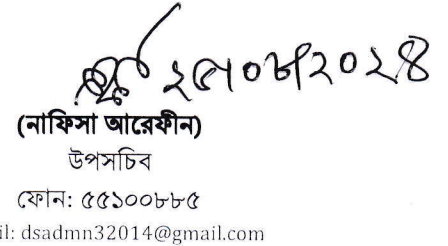 ২৫।০৮।২০২৪
(নাফিসা আরেফীন)
উপসচিব
ফোন: ৫৫১০০৮৮৫
il: dsadmn32014@gmail.com